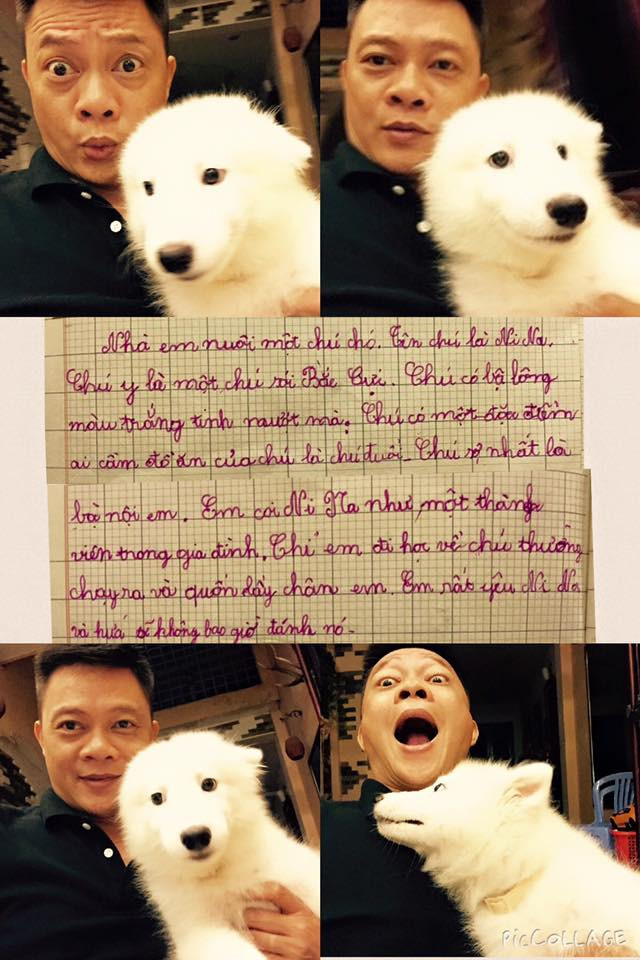 Nhà em nuôi một chú chó. Tên chú là Ni Na.
Chú y là một chú sói Bắc Cực. Chú có bộ lông
màu trắng tinh mượt mà. Chú có một đặc điểm
ai cầm đồ ăn của chú là chú đuổi. Chú sợ nhất là
bà nội em. Em coi Ni Na như một thành
viên trong gia đình. Khi em đi học về chú thường
chạy ra và quấn lấy chân em. Em rất yêu Ni Na
và hứa sẽ không bao giờ đánh nó.
PICCOLLAGE